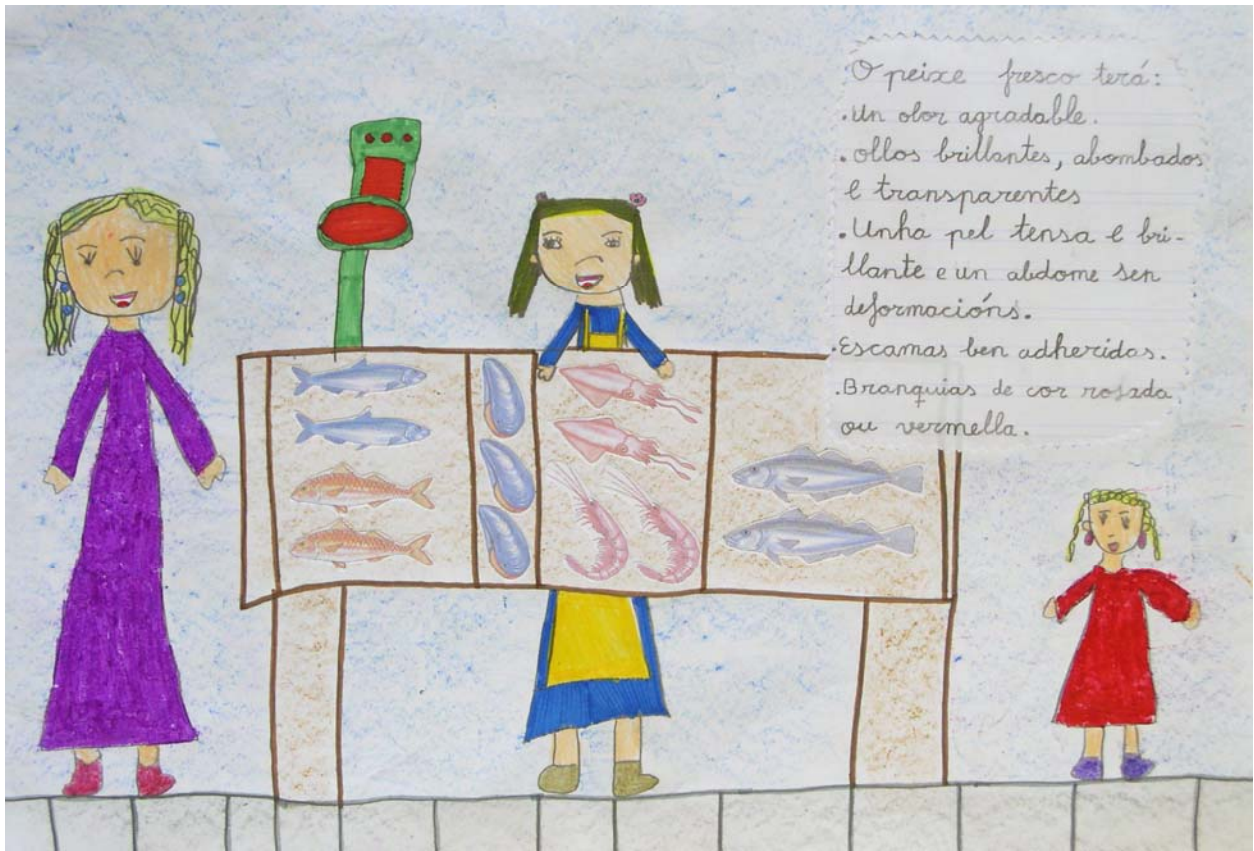 O peixe fresco terá:
.un olor agradable.
. ollos brillantes, abombados
e transparentes
.Unha pel tensa e bri-
llante e un abdome sen
deformacións.
.Escamas ben adheridas.
.Branquias de cor rosada
ou vermella.